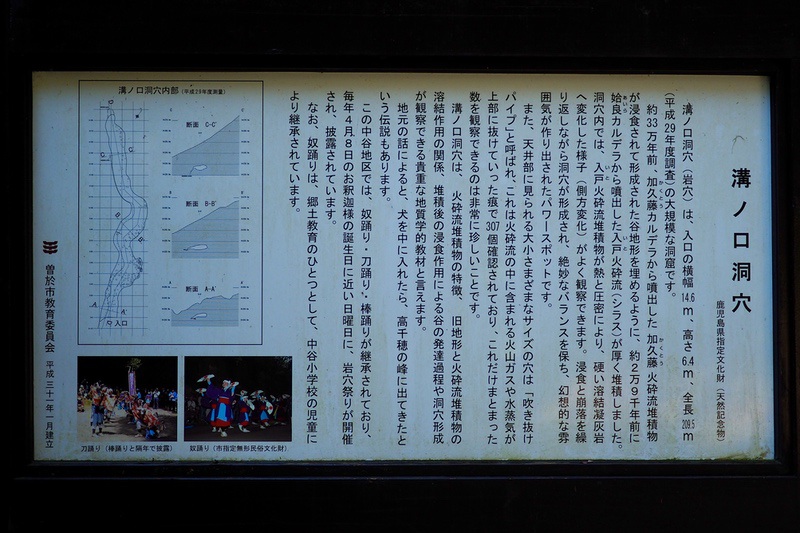 溝ノ口洞穴
鹿児島県指定文化財（天然記念物）
溝ノ口洞穴（岩穴）は、入口の横幅14.6m、高さ6.4m、全長209.5m
（平成29年度調査）の大規模な洞窟です。
約33万年前、加久藤カルデラから噴出した加久藤火砕流堆積物
が浸食されて形成された谷地形を埋めるように、約2万9千年前に
姶良カルデラから噴出した入戸火砕流（シラス）が厚く堆積しました。
洞穴内では、入戸火砕流堆積物が熱と圧密により、硬い溶結凝灰岩
へ変化した様子（側方変化）がよく観察できます。浸食と崩落を繰
り返しながら洞穴が形成され、絶妙なバランスを保ち、幻想的な雰
囲気が作り出されたパワースポットです。
また、天井部に見られる大小さまざまなサイズの穴は「吹き抜け
パイプ」と呼ばれ、これは火砕流の中に含まれる火山ガスや水蒸気が
上部に抜けていった痕で307個確認されており、これだけまとまった
数を観察できるのは非常に珍しいことです。
溝ノ口洞穴は、火砕流堆積物の特徴、旧地形と火砕流堆積物の
溶結作用の関係、堆積後の浸食作用による谷の発達過程や洞穴形成
が観察できる貴重な地質学的教材と言えます。
地元の話によると、犬を中に入れたら、高千穂の峰に出てきたと
いう伝説もあります。
この中谷地区では、奴踊り・刀踊り・棒踊りが継承されており、
毎年4月8日のお釈迦様の誕生日に近い日曜日に、岩穴祭りが開催
され、披露されています。
なお、奴踊りは、郷土教育のひとつとして、中谷小学校の児童に
より継承されています。
溝ノ口洞穴内部（平成29年度測量）
断面 C-C'
断面 B-B'
断面 A-A'
入口
刀踊り（棒踊りと隔年で披露）
奴踊り（市指定無形民俗文化財）
曽於市教育委員会 平成三十一年一月建立